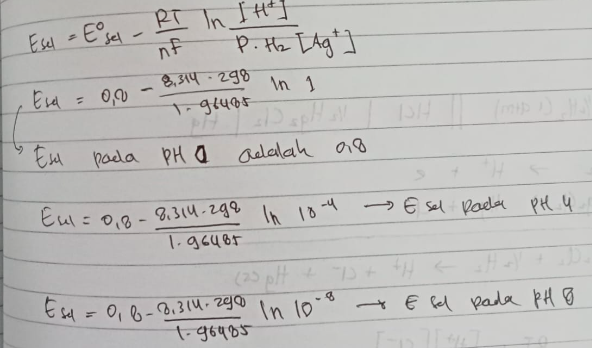 Esel = E°sel - RT/nF ln [H+]/P.H2 [Ag+]
Esel = 0,8 - 8,314 . 298/1 . 96485 ln 1
Esel pada PH 0 adalah 0,8
Esel = 0,8 - 8,314 . 298/1 . 96485 ln 10^-4 → E sel pada PH 4
Esel = 0,8 - 8,314 . 298/1 . 96485 ln 10^-8 → E sel pada PH 8